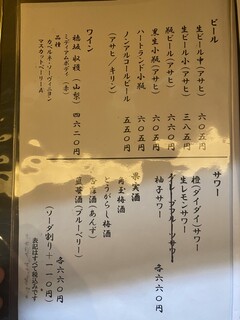 ビール
生ビール中（アサヒ） 六〇五円
生ビール小（アサヒ） 三八五円
瓶ビール（アサヒ） 六〇五円
黒生小瓶（アサヒ） 六〇五円
ハートランド小瓶 六〇五円
ノンアルコールビール 五五〇円
（アサヒ／キリン）
ワイン
穂坂収穫（山梨） 四六二〇円
ミディアムボディ（赤）
品種
カベルネ・ソーヴィニヨン
マスカットベーリーA
サワー
橙（ダイダイ）サワー
生レモンサワー
グレープフルーツサワー
柚子サワー
各六六〇円
果実酒
南玉梅酒
とうがらし梅酒
杏露酒（あんず）
藍苺酒（ブルーベリー）
各六六〇円
（ソーダ割り＋一一〇円）
表記はすべて税込みです